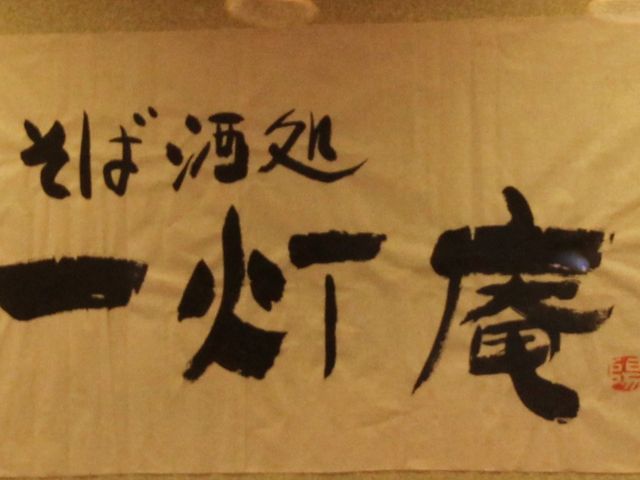 そば酒処
一灯庵